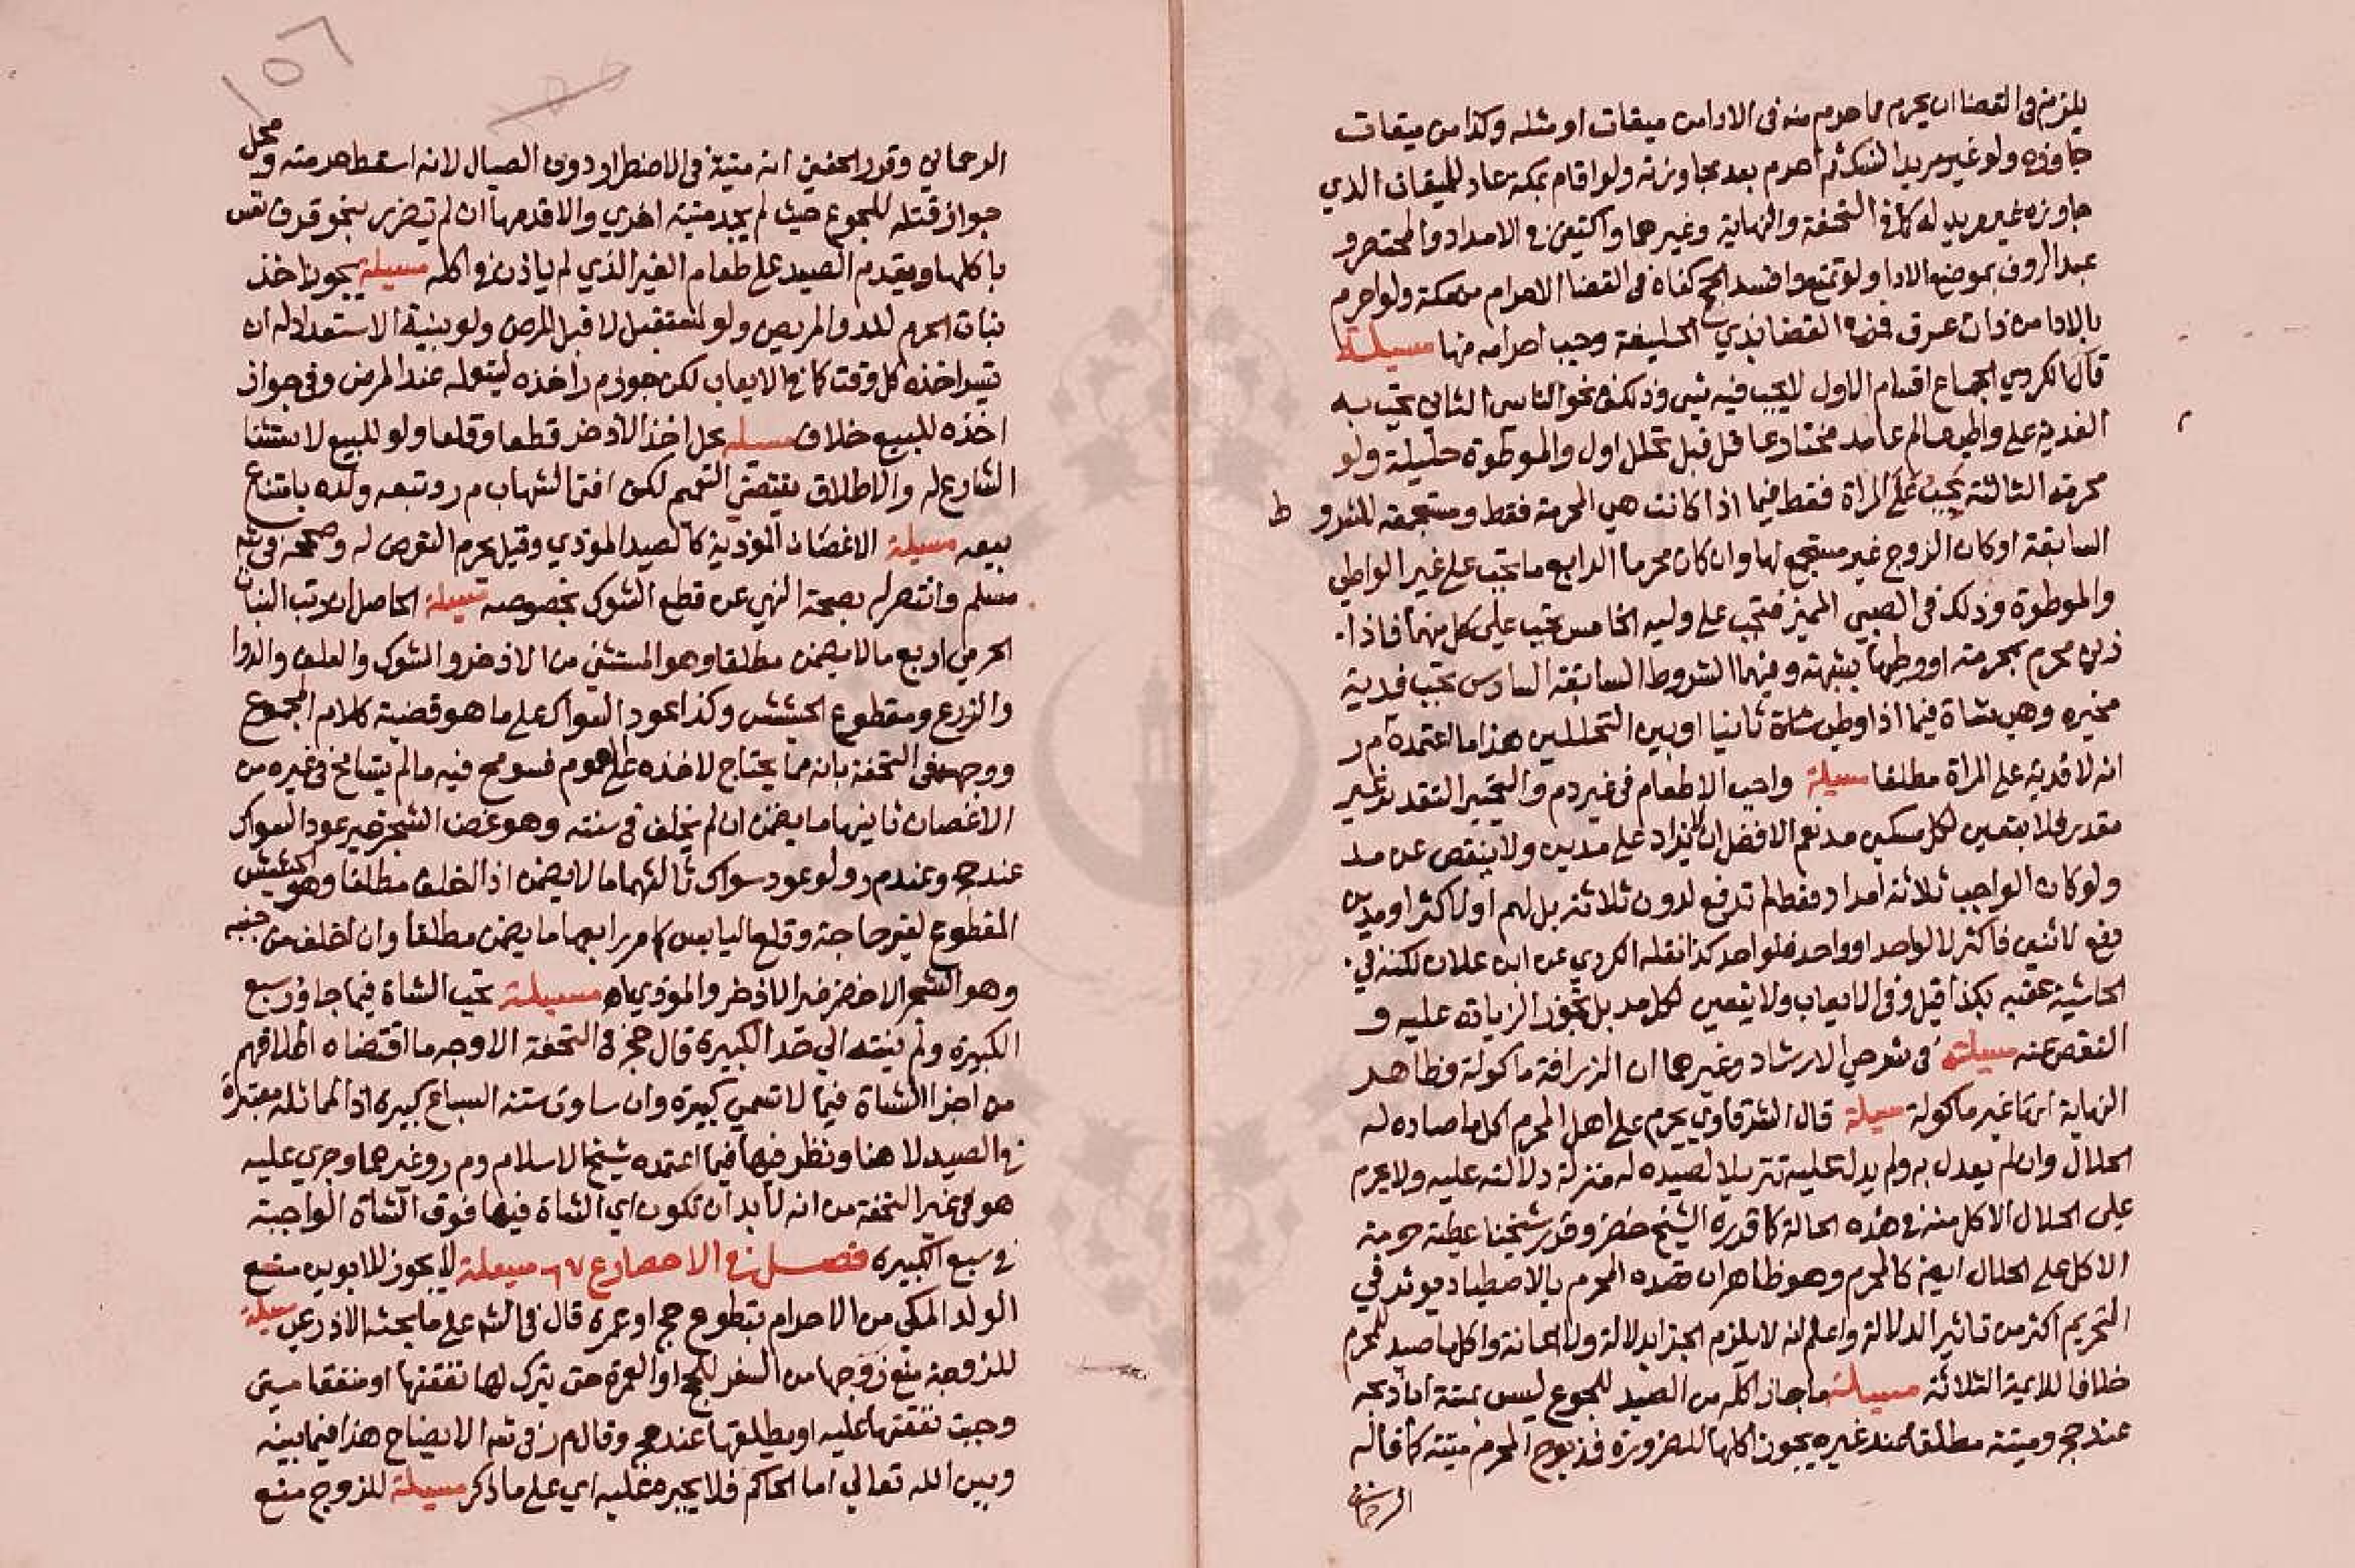 يلزمه في القضا ان يحرم مما احرم منه في الادا من ميقات او مثله وكذا من ميقات
جاوزه ولو غير مريد النسك ثم احرم بعد مجاوزته ولو اقام بمكة عاد للميقات الذي
جاوزه غير مريد له كما في التحفة والنهاية وغيرهما واكتفى في الامداد والمختصر و
عبد الروف بموضع الادا ولو تمتع وافسد الحج كفاه في القضا الاحرام من مكة ولو احرم
بالادا من ذات عرق فمر في القضا بذي الحليفة وجب احرامه منها مسيلة
قال الكردي الجماع اقسام الاول لا يجب فيه شي وذلك في نحو الناسي الثاني تجب به
الفدية على واطي عالم عامد مختار عاقل قبل تحلل اول والموطوة حليلة ولو
محرمة الثالثة تجب على المراة فقط فيما اذا كانت هي المحرمة فقط ومستجمعة للشرو ط
السابقة او كان الزوج غير مستجمع لها وان كان محرما الرابع ما تجب على غير الواطي
والموطوة وذلك في الصبي المميز فتجب على وليه الخامس تجب على كل منهما فاذا
زنى محرم بمحرمة او وطيها بشبهة وفيهما الشروط السابقة السادس تجب فدية
مخيره وهي شاة فيما اذا وطي ثانيا او بين التحللين هذا ما اعتمده م ر
انه لا فدية على المراة مطلقا مسيلة واجب الاطعام في غير دم والتخيير التقدير غير
مقدر فلا يتعين لكل مسكين مد نعم الافضل ان لا يزاد على مدين ولا ينقص عن مد
ولو كان الواجب ثلاثة امداد فقط لم تدفع لدون ثلاثة بل لهم او لاكثر او مدين
دفع لاثنين فاكثر لا لواحد او واحد فلواحد كذا نقله الكردي عن ابن علان لكنه في
الحاشية عقبه بكذا قيل وفي الايعاب ولا يتعين لكل مد بل تجوز الزيادة عليه و
النقص عنه مسيلة في شرحي الارشاد وغيرها ان الزرافة ماكولة فظاهر
النهاية انها غير ماكولة مسيلة قال الشرقاوي يحرم على اهل المحرم اكل ما صاده له
الحلال وان لم يعدل به ولم يدله عليه تنزيلا لصيده له منزلة دلالته عليه ولا يحرم
على الحلال الاكل منه في هذه الحالة كما قرره الشيخ خضر وقرر شيخنا عطية حرمة
الاكل على الحلال ايضا كالمحرم وهو ظاهر ان قصده المحرم بالاصطياد يوثر في
التحريم اكثر من تاثير الدلالة واعلم انه لا يلزم الجزا بدلالة ولا اعانة واكل ما صيد للمحرم
خلافا للايمة الثلاثة مسيلة ما جاز اكله من الصيد للجوع ليس بميتة اذا ذبحه
عند حج وميتة مطلقا عند غيره يجوز اكلها للضرورة فذبوح المحرم ميتة كما قاله
الرحماني
الرحماني وقرر الحفني انه ميتة في الاضطرار دون الصيال لانه اسقط حرمته ومحل
جواز قتله للجوع حيث لم يجد ميتة اخري والا قدمها ان لم تضرر بنحو قرف نفس
باكلها ويقدم الصيد على طعام الغير الذي لم ياذن في اكله مسيلة يجوز اخذ
نبات الحرم للدوا لمريض ولو لمستقبل لا قبل المرض ولو بنية الاستعداد له ان
تيسر اخذه كل وقت كما في الايعاب لكن جوز م ر اخذه ليستعمله عند المرض وفي جواز
اخذه للبيع خلاف مسيلة يحل اخذ الاذخر قطعا وقلعا ولو للبيع لاستثنا
الشارع له والاطلاق يقتضي التعميم لكن افتى الشهاب م ر وتبعه ولده بامتناع
بيعه مسيلة الاغصان الموذية كالصيد الموذي وقيل يحرم التعرض له وصححه في شرح
مسلم وانتصر له بصحة النهي عن قطع الشوك بخصوصه مسيلة الحاصل ان مراتب النبات
الحرمي اربع ما لا يضمن مطلقا وهو المستثنى من الاذخر والشوك والعلف والدوا
والزرع ومقطوع الحشيش وكذا عود السواك على ما هو قضية كلام المجموع
ووجهه في التحفة بانه مما يحتاج لاخذه على العموم فسومح فيه ما لم يتسامح في غيره من
الاغصان ثانيها ما يضمن ان لم يخلف في سنته وهو غصن الشجر غير عود السواك
عند حج وعند م ر ولو عود سواك ثالثها ما لا يضمن اذا اخلف مطلقا وهو الحشيش
المقطوع لغير حاجة وقلع اليابس كما مر رابعها ما يضمن مطلقا وان اخلف من حينه
وهو الشجر الاخضر غير الاذخر والموذي اه مسيلة تجب الشاة فيما جاوز سبع
الكبيرة ولم ينته الي حد الكبيرة قال حجر في التحفة الاوجه ما اقتضاه اطلاقهم
من اجزا الشاة فيما لا تسمى كبيرة وان ساوت ستة اسباع كبيرة اذا المماثلة معتبرة
في الصيد لا هنا ونظر فيها فيما اعتمده شيخ الاسلام وم ر وغيرهما وجري عليه
هو في غير التحفة من انه لا بد ان تكون اي الشاة فيها فوق الشاة الواجبة
في سبع الكبيرة فصل في الاحصار ع مسيلة لا يجوز للابوين منع
الولد المكي من الاحرام بتطوع حج او عمرة قال في الشرح على ما بحثه الاذرعي مسيلة
للزوجة منع زوجها من السفر للحج او العمرة حتى يترك لها نفقتها او منفقا متى
وجبت نفقتها عليه او يطلقها عند حج وقال م ر في شرح الايضاح هذا فيما بينه
وبين الله تعالي اما الحاكم فلا يجبره عليه اي على ما ذكر مسيلة للزوج منع
١٥٦